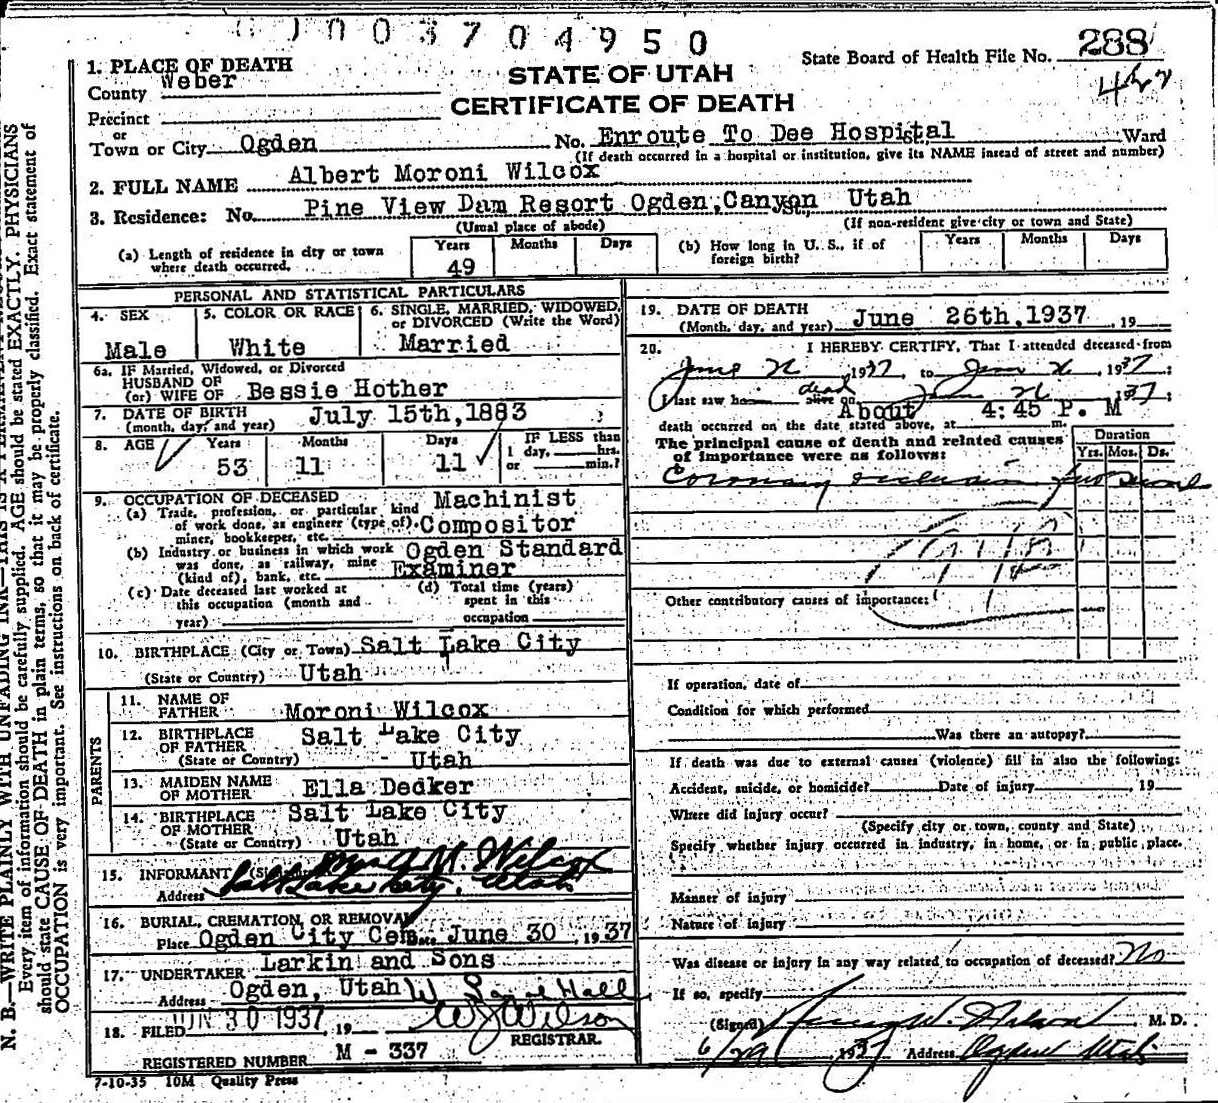 003704950
State Board of Health File No. 288
STATE OF UTAH
CERTIFICATE OF DEATH
1. PLACE OF DEATH
County Weber
Precinct
or
Town or City Ogden No. Enroute To Dee Hospital Ward
(If death occurred in a hospital or institution, give its NAME insead of street and number)
2. FULL NAME Albert Moroni Wilcox
3. Residence: No. Pine View Dam Resort Ogden, Canyon Utah
(Usual place of abode) (If non-resident give city or town and State)
(a) Length of residence in city or town where death occurred. Years 49 Months Days
(b) How long in U. S., if of foreign birth? Years Months Days
PERSONAL AND STATISTICAL PARTICULARS
4. SEX Male
5. COLOR OR RACE White
6. SINGLE, MARRIED, WIDOWED, or DIVORCED (Write the Word) Married
6a. IF Married, Widowed, or Divorced
HUSBAND OF
(or) WIFE OF Bessie Hother
7. DATE OF BIRTH
(month, day, and year) July 15th, 1883
8. AGE Years 53 Months 11 Days 11 IF LESS than 1 day, hrs. or min.?
9. OCCUPATION OF DECEASED Machinist
(a) Trade, profession, or particular kind
of work done, as engineer (type of) Compositor
miner, bookkeeper, etc.
(b) Industry or business in which work Ogden Standard
was done, as railway, mine Examiner
(kind of), bank, etc.
(c) Date deceased last worked at this occupation (month and year)
(d) Total time (years) spent in this occupation
10. BIRTHPLACE (City or Town) Salt Lake City
(State or Country) Utah
PARENTS
11. NAME OF FATHER Moroni Wilcox
12. BIRTHPLACE OF FATHER Salt Lake City
(State or Country) Utah
13. MAIDEN NAME OF MOTHER Ella Decker
14. BIRTHPLACE OF MOTHER Salt Lake City
(State or Country) Utah
15. INFORMANT Mrs A. M. Wilcox
Address Salt Lake City, Utah
16. BURIAL, CREMATION, OR REMOVAL
Place Ogden City Cem Date June 30, 1937
17. UNDERTAKER Larkin and Sons
Address Ogden, Utah
18. FILED JUN 30 1937, 19 W J Wilson
REGISTRAR.
REGISTERED NUMBER M - 337
7-10-35 10M Quality Press
19. DATE OF DEATH
(Month, day, and year) June 26th, 1937, 19
20. I HEREBY CERTIFY, That I attended deceased from
June 26, 1937, to June 26, 1937;
I last saw h dead alive on June 26 1937;
death occurred on the date stated above, at About 4:45 P. M m.
The principal cause of death and related causes
of importance were as follows:
Duration
Yrs. Mos. Ds.
Coronary occlusion
Other contributory causes of importance:
If operation, date of
Condition for which performed
Was there an autopsy?
If death was due to external causes (violence) fill in also the following:
Accident, suicide, or homicide? Date of injury, 19
Where did injury occur?
(Specify city or town, county and State)
Specify whether injury occurred in industry, in home, or in public place.
Manner of injury
Nature of injury
Was disease or injury in any way related to occupation of deceased? No
If so, specify
(Signed) W. Nelson, M. D.
6/29 1937 Address Ogden Utah
N. B.—WRITE PLAINLY WITH UNFADING INK—THIS IS A PERMANENT
Every item of information should be carefully supplied. AGE should be stated EXACTLY. PHYSICIANS
should state CAUSE OF DEATH in plain terms, so that it may be properly classified. Exact statement of
OCCUPATION is very important. See instructions on back of certificate.